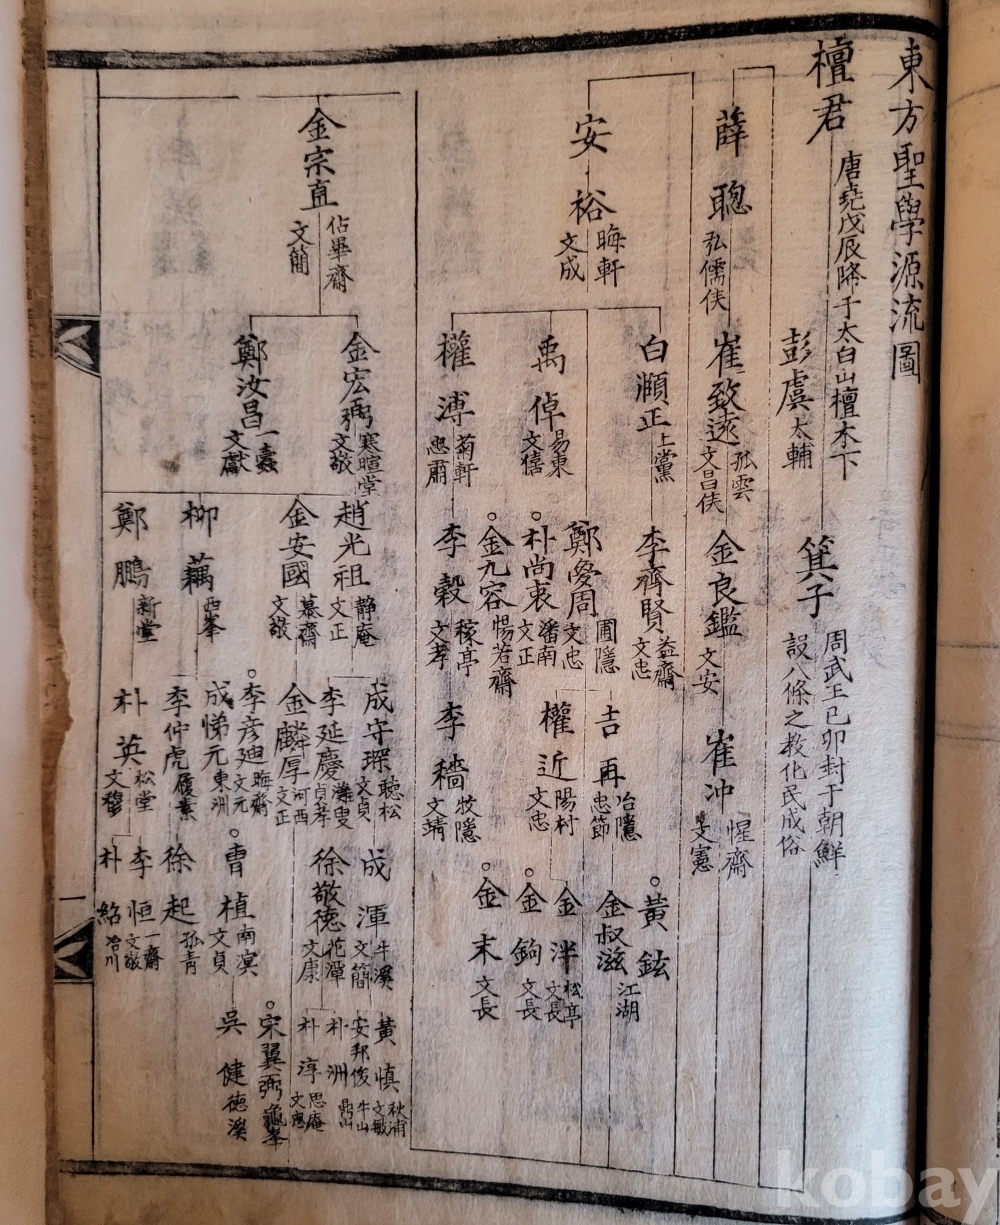 東方聖學源流圖
檀君 唐堯戊辰降于太白山檀木下
彭虞 太輔
箕子 周武王己卯封于朝鮮
設八條之教化民成俗
薛聰 弘儒侯
崔致遠 孤雲 文昌侯
金良鑑 文安
崔冲 惺齋 文憲
安裕 晦軒 文成
白頤正 上黨
李齊賢 益齋 文忠
禹倬 易東 文僖
鄭愛周 圃隱 文忠
吉再 冶隱 忠節
黃鉉
金叔滋 江湖
權近 陽村 文忠
金泮 松亭 文長
金鉤 文長
金末 文長
朴尚衷 潘南 文正
金九容 惕若齋
權溥 菊軒 忠肅
李穀 稼亭 文孝
李穡 牧隱 文靖
金宗直 佔畢齋 文簡
金宏弼 寒暄堂 文敬
鄭汝昌 一蠹 文獻
趙光祖 靜庵 文正
金安國 慕齋 文敬
柳藕 西峯
鄭鵬 新堂
成守琛 聽松 文貞
李延慶 灘叟 貞孝
金麟厚 河西 文正
李彦迪 晦齋 文元
成悌元 東洲
李仲虎 履素
朴英 松堂 文穆
成渾 牛溪 文簡
徐敬德 花潭 文康
曺植 南溟 文貞
徐起 孤青
李恒 一齋 文敬
朴紹 冶川
黃慎 秋浦 文敏
安邦俊 牛山
朴洲
朴淳 思庵 文忠
宋翼弼 龜峯
吳健 德溪
kobay